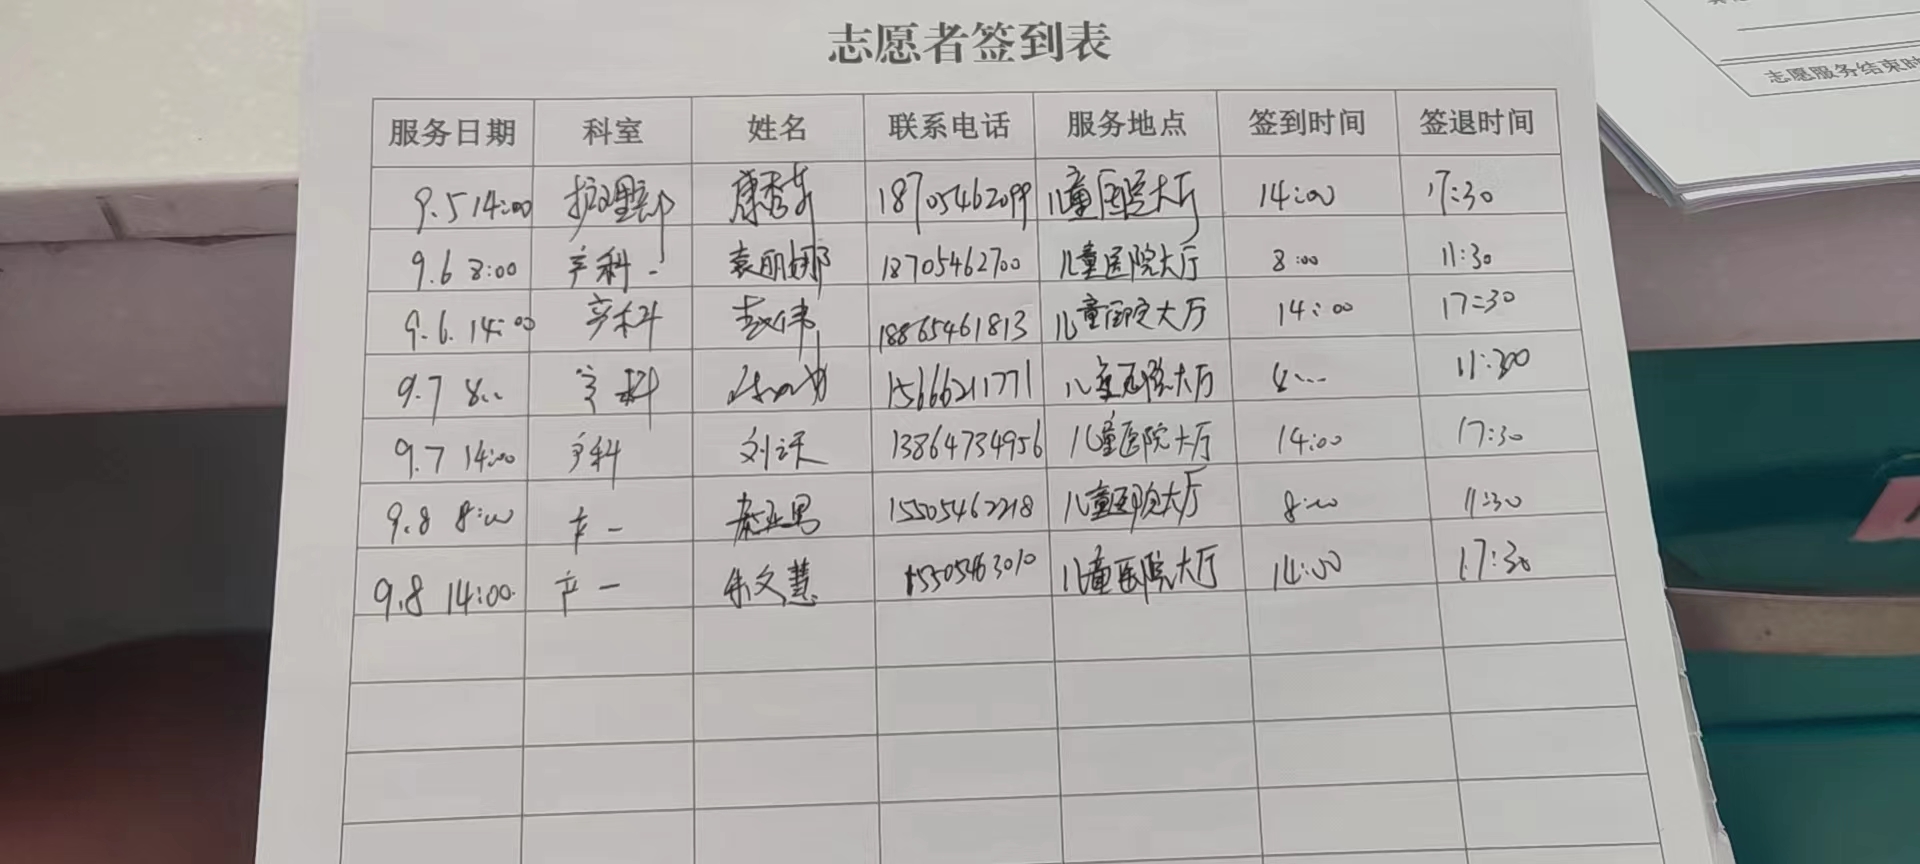 志愿者签到表
志愿服务结束时
服务日期 科室 姓名 联系电话 服务地点 签到时间 签退时间
9.5 14:00 护理部 康秀 18705462099 儿童医院大厅 14:00 17:30
9.6 8:00 产科一 袁丽娜 18705462700 儿童医院大厅 8:00 11:30
9.6. 14:00 产科 赵伟 18865461813 儿童医院大厅 14:00 17:30
9.7 8:00 产科 15666211771 儿童医院大厅 8:00 11:30
9.7 14:00 产科 刘 13864734956 儿童医院大厅 14:00 17:30
9.8 8:00 产一 15505462218 儿童医院大厅 8:00 11:30
9.8 14:00 产一 朱文慧 15505463010 儿童医院大厅 14:00 17:30